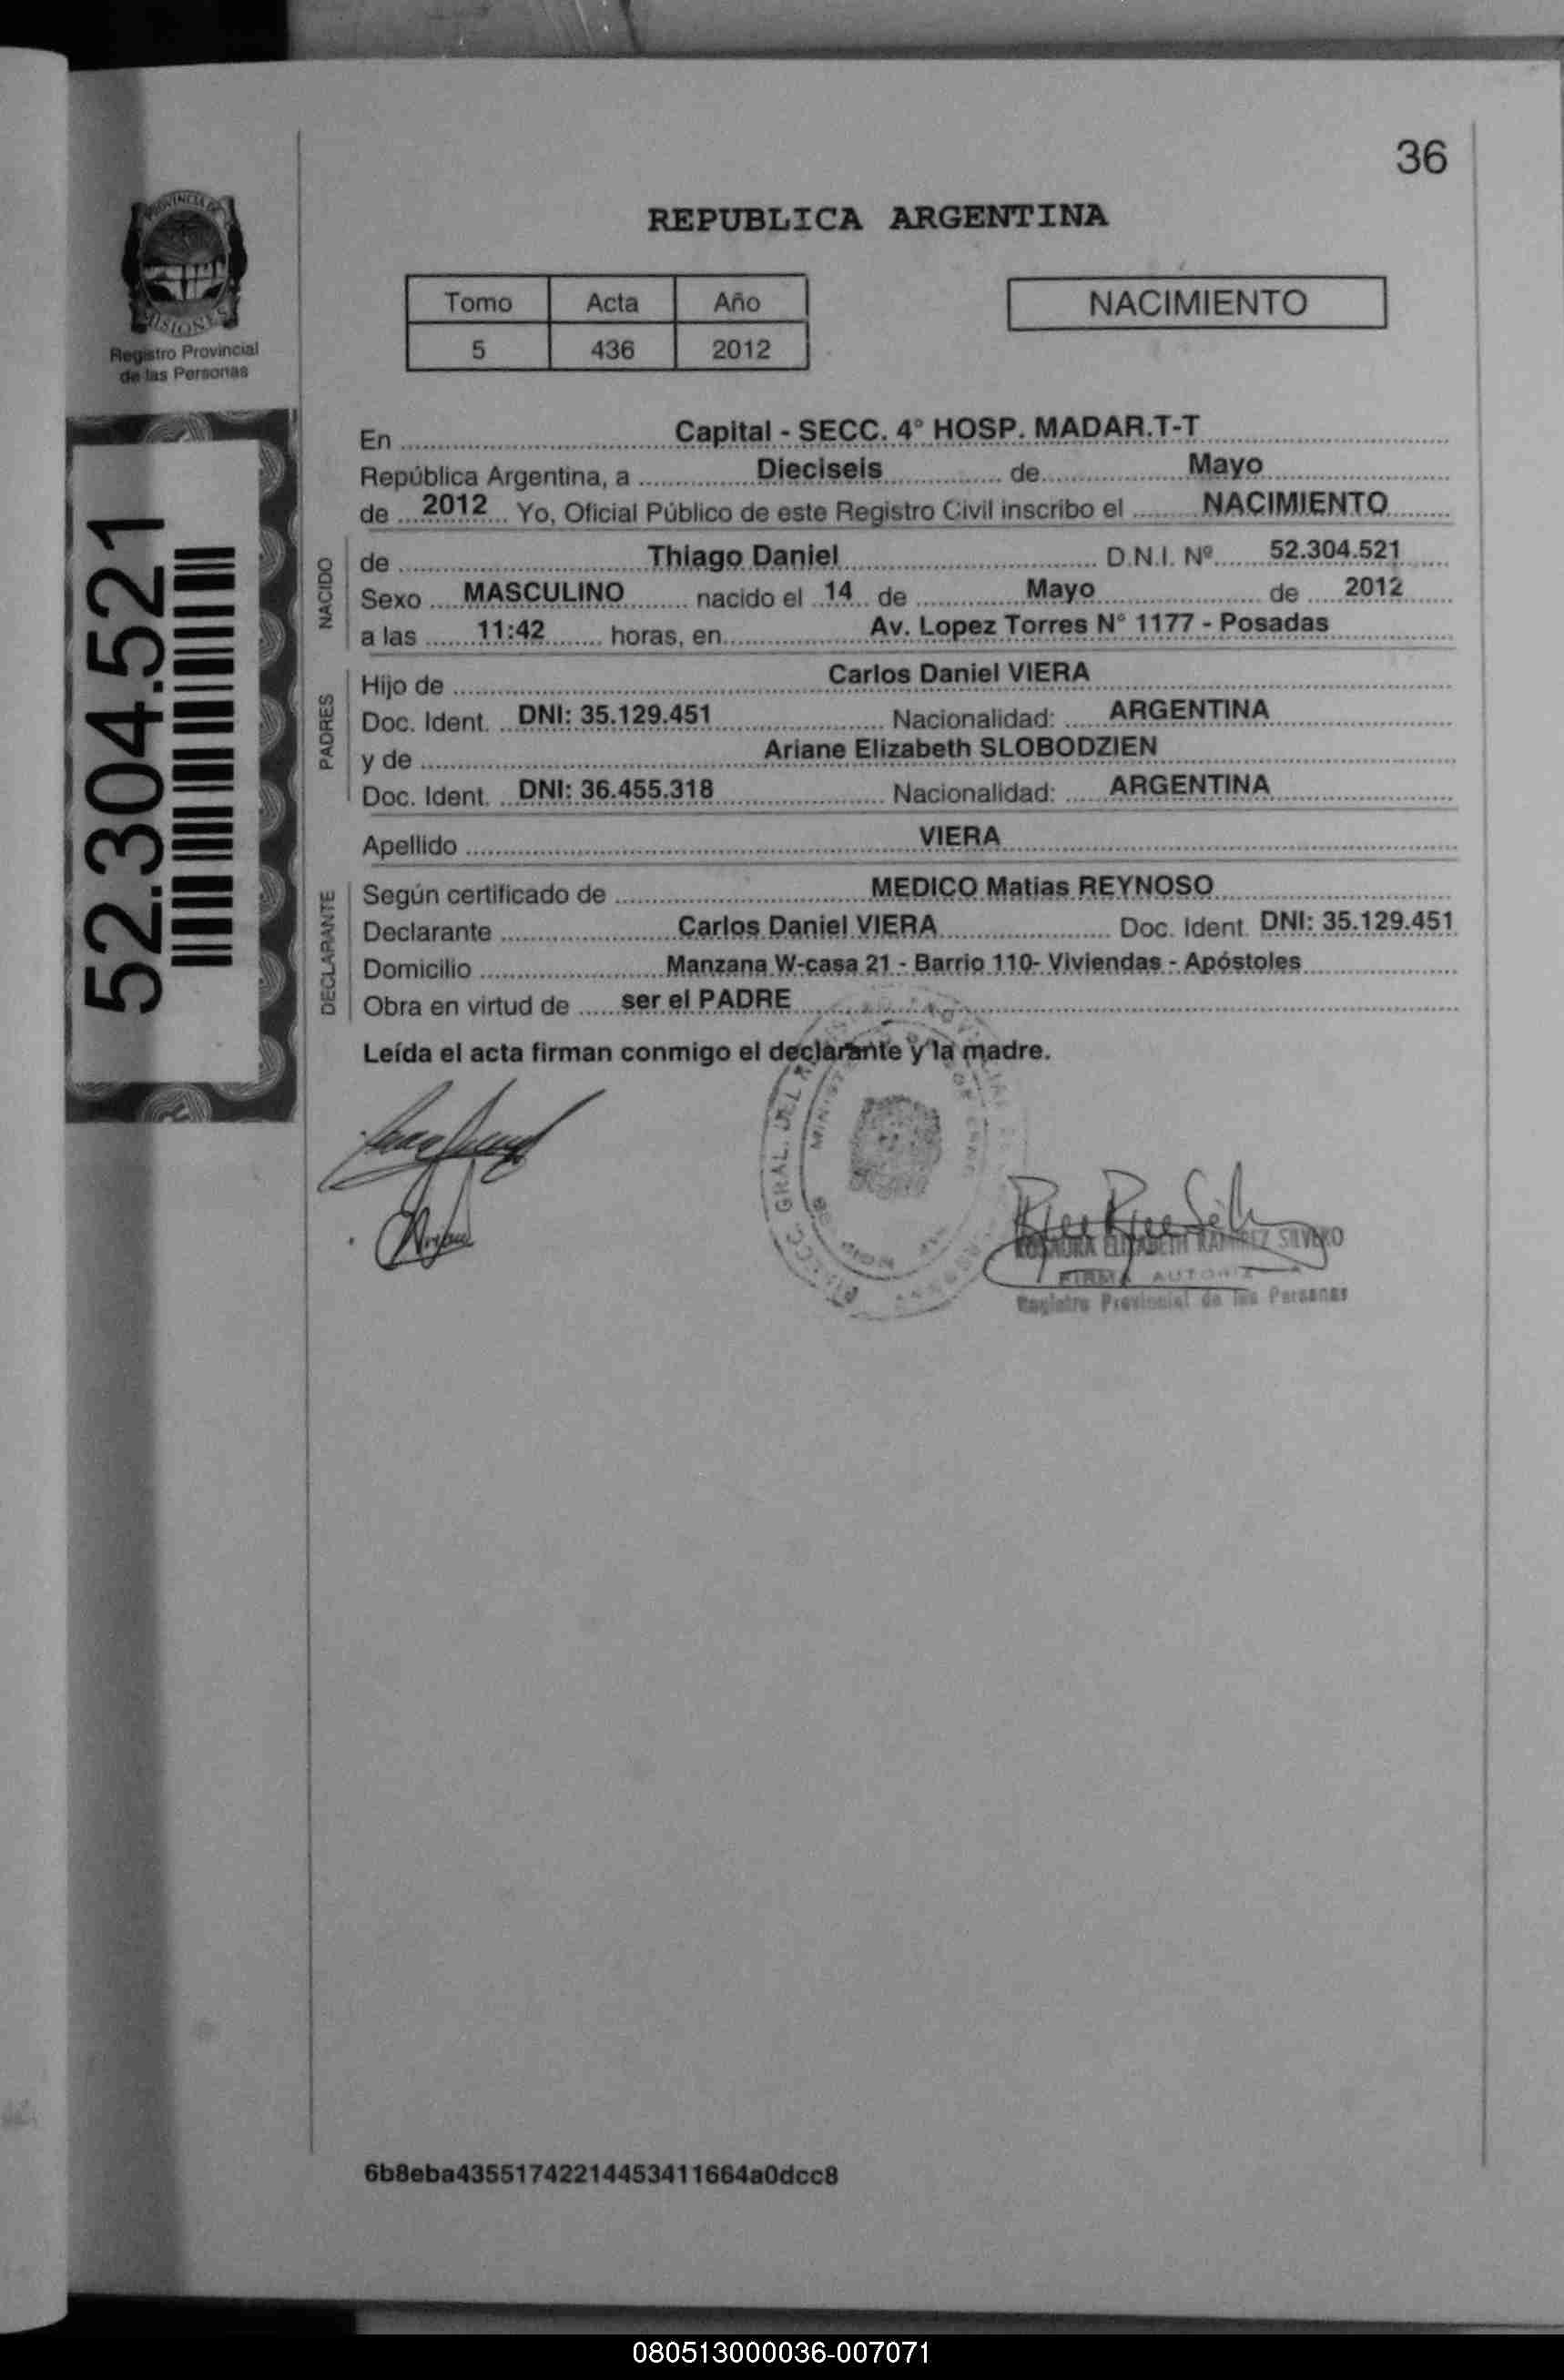 36
PROVINCIA DE
MISIONES
Registro Provincial
de las Personas
REPUBLICA ARGENTINA
Tomo Acta Año
5 436 2012
NACIMIENTO
52.304.521
En Capital - SECC. 4° HOSP. MADAR.T-T
República Argentina, a Dieciseis de Mayo
de 2012 Yo, Oficial Público de este Registro Civil inscribo el NACIMIENTO
NACIDO
de Thiago Daniel D.N.I. Nº 52.304.521
Sexo MASCULINO nacido el 14 de Mayo de 2012
a las 11:42 horas, en Av. Lopez Torres N° 1177 - Posadas
PADRES
Hijo de Carlos Daniel VIERA
Doc. Ident. DNI: 35.129.451 Nacionalidad: ARGENTINA
y de Ariane Elizabeth SLOBODZIEN
Doc. Ident. DNI: 36.455.318 Nacionalidad: ARGENTINA
Apellido VIERA
DECLARANTE
Según certificado de MEDICO Matias REYNOSO
Declarante Carlos Daniel VIERA Doc. Ident. DNI: 35.129.451
Domicilio Manzana W-casa 21 - Barrio 110- Viviendas - Apóstoles
Obra en virtud de ser el PADRE
Leída el acta firman conmigo el declarante y la madre.
GRAL. DEL
ELIZABETH RAMIREZ
FIRMA
Registro Provincial de las Personas
6b8eba43551742214453411664a0dcc8
080513000036-007071